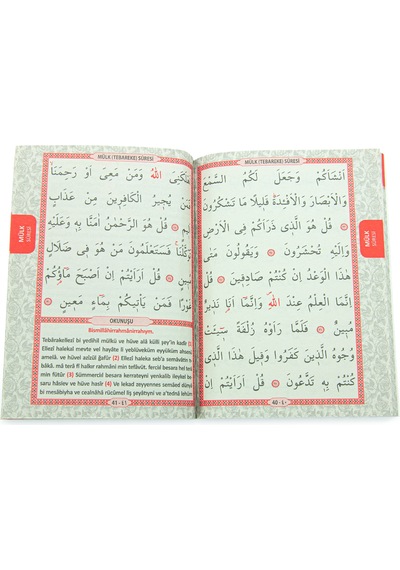 MÜLK (TEBAREKE) SÛRESİ
اَنْشَاَكُمْ وَجَعَلَ لَكُمُ السَّمْعَ
وَالْاَبْصَارَ وَالْاَفْئِدَةَ قَلِيلًا مَا تَشْكُرُونَ
قُلْ هُوَ الَّذِى ذَرَاَكُمْ فِى الْاَرْضِ
وَاِلَيْهِ تُحْشَرُونَ وَيَقُولُونَ مَتٰى
هٰذَا الْوَعْدُ اِنْ كُنْتُمْ صَادِقِينَ قُلْ
اِنَّمَا الْعِلْمُ عِنْدَ اللّٰهِ وَاِنَّمَا اَنَا نَذِيرٌ
مُبِينٌ فَلَمَّا رَاَوْهُ زُلْفَةً سِيـَٔتْ
وُجُوهُ الَّذِينَ كَفَرُوا وَقِيلَ هٰذَا الَّذِى
كُنْتُمْ بِهِ تَدَّعُونَ قُلْ اَرَاَيْتُمْ اِنْ
40 - ٤٠
MÜLK
SÛRESİ
MÜLK (TEBAREKE) SÛRESİ
اللّٰهُ وَمَنْ مَعِىَ اَوْ رَحِمَنَا
فَمَنْ يُجِيرُ الْكَافِرِينَ مِنْ عَذَابٍ
قُلْ هُوَ الرَّحْمٰنُ اٰمَنَّا بِهِ وَعَلَيْهِ
تَوَكَّلْنَا فَسَتَعْلَمُونَ مَنْ هُوَ فِى ضَلَالٍ
قُلْ اَرَاَيْتُمْ اِنْ اَصْبَحَ مَاؤُكُمْ
غَوْرًا فَمَنْ يَاْتِيكُمْ بِمَاءٍ مَعِينٍ
OKUNUŞU
Bismillâhirrahmânirrahıym.
Tebârakellezî bi yedihil mülkü ve hüve alâ külli şey'in kadır (1)
Ellezî haleksl mevte vel hayâte li yeblüveküm eyyüküm ahsenü
amelâ. ve hüvel azîzül ğafûr (2) Ellezî haleka seb'a semâvâtin
tıbâkâ. mâ terâ fî halkır rahmâni min tefâvüt. ferciıl besara hel terâ
min fütûr (3) Sümmerciıl besara kerrateyni yenkalib ileykel be-
saru hâsiev ve hüve hasîr (4) Ve lekad zeyyennes semâed dünyâ
bi mesâbîyha ve cealnâhâ rücûmel liş şeyâtıyni ve a'tednâ lehüm
41 - ٤١
MÜLK
SÛRESİ